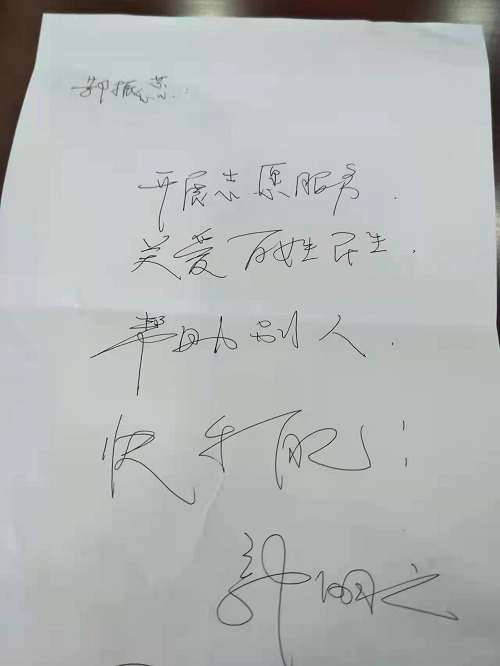 郭振荣:
开展志愿服务.
关爱百姓民生.
帮助别人.
快乐自己!
郭明义